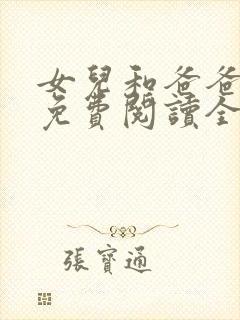 女兒和爸爸
免費閱讀全
張寶通